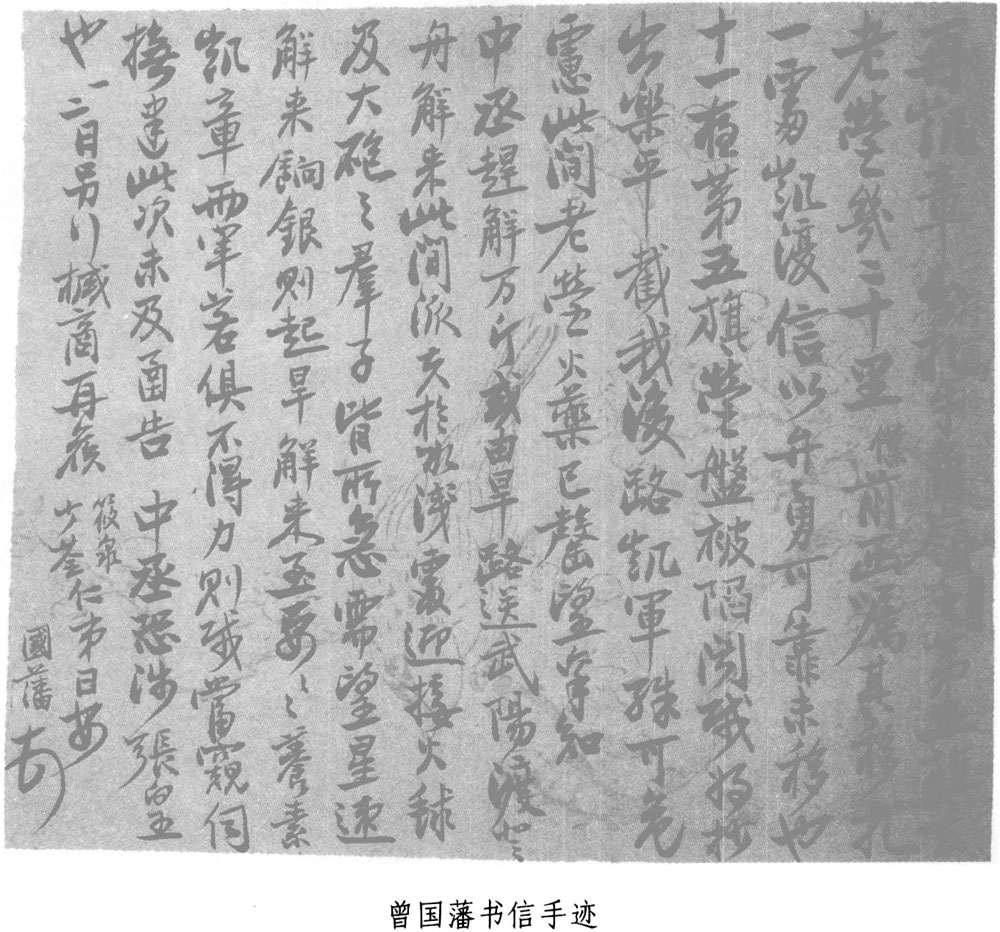 再凱章
老營幾二十里 侍前函囑其移扎
一處凱復信以弁勇可靠未移也
十一夜第五旗營盤被陷聞賊將抄
出樂平截我後路凱軍殊可危
慮此間老營火藥已罄望咨知
中丞趕解万斤或由旱路送武陽渡登
舟解来此間派夫於水淺處迎接火毬
及大砲之羣子皆所急需望星速
解来餉銀則起旱解来至要々々養素
凱章兩軍若俱不得力則賊當窺伺
撫建此次未及函告 中丞恐涉張皇
也一二日另行椷商再候
筱泉
少荃仁弟日安
國藩 頓
曾国藩书信手迹